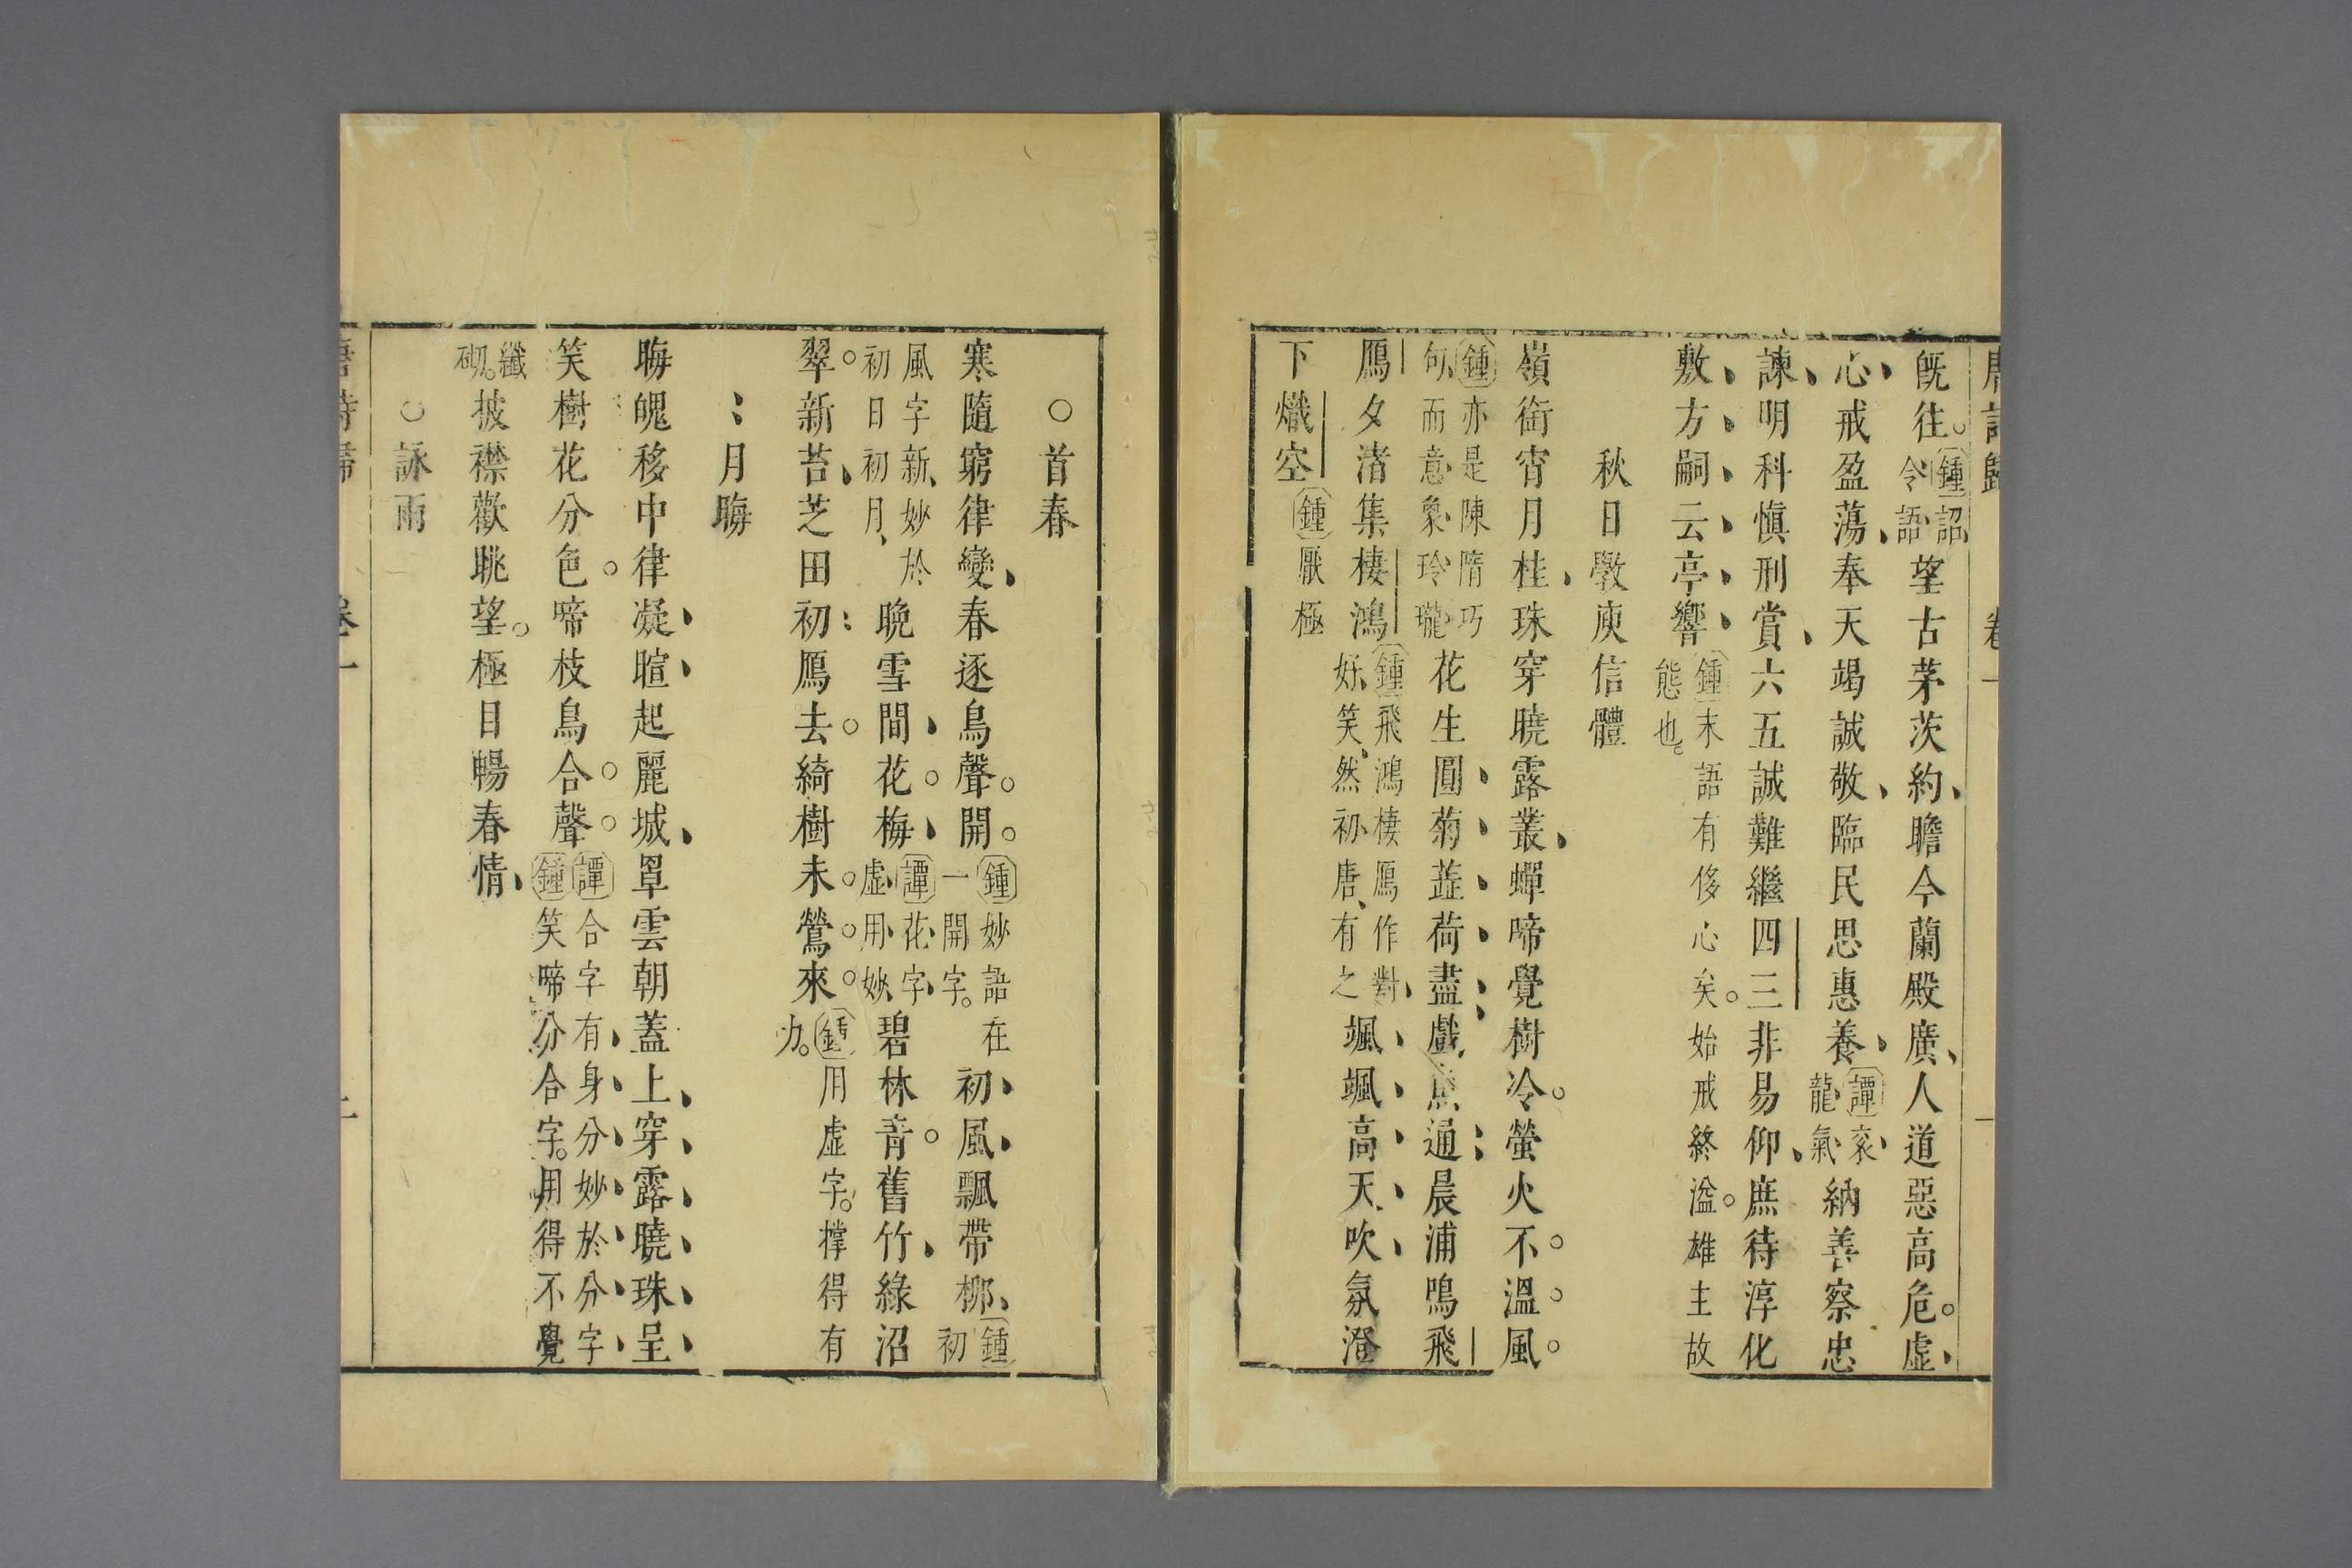 唐詩歸 卷一
既往鍾詔令語望古茅茨約瞻今蘭殿廣人道惡高危虛
心戒盈蕩奉天竭誠敬臨民思惠養譚袞龍氣納善察忠
諫明科愼刑賞六五誠難繼四三非易仰庶待淳化
敷方嗣云亭響鍾末語有侈心矣始戒終溢雄主故態也
秋日斆庾信體
嶺銜宵月桂珠穿曉露叢蟬啼覺樹冷螢火不溫風
鍾亦是陳隋巧句而意象玲瓏花生圓菊蕋荷盡戲魚通晨浦鳴飛
鴈夕渚集棲鴻鍾飛鴻棲鴈作對妖笑然初唐有之颯颯高天吹氛澄
下熾空鍾厭極
○首春
寒隨窮律變春逐鳥聲開鍾妙語在一開字初風飄帶柳鍾初
風字新妙於初日初月晩雪間花梅譚花字虛用妙碧林青舊竹綠沼
翠新苔芝田初鴈去綺樹未鶯來鍾用虛字撑得有力
月晦
晦魄移中律凝暄起麗城罩雲朝蓋上穿露曉珠呈
笑樹花分色啼枝鳥合聲譚合字有身分妙於分字鍾笑啼分合字用得不覺
纖砌披襟歡眺望極目暢春情
○詠雨
唐詩歸 卷一